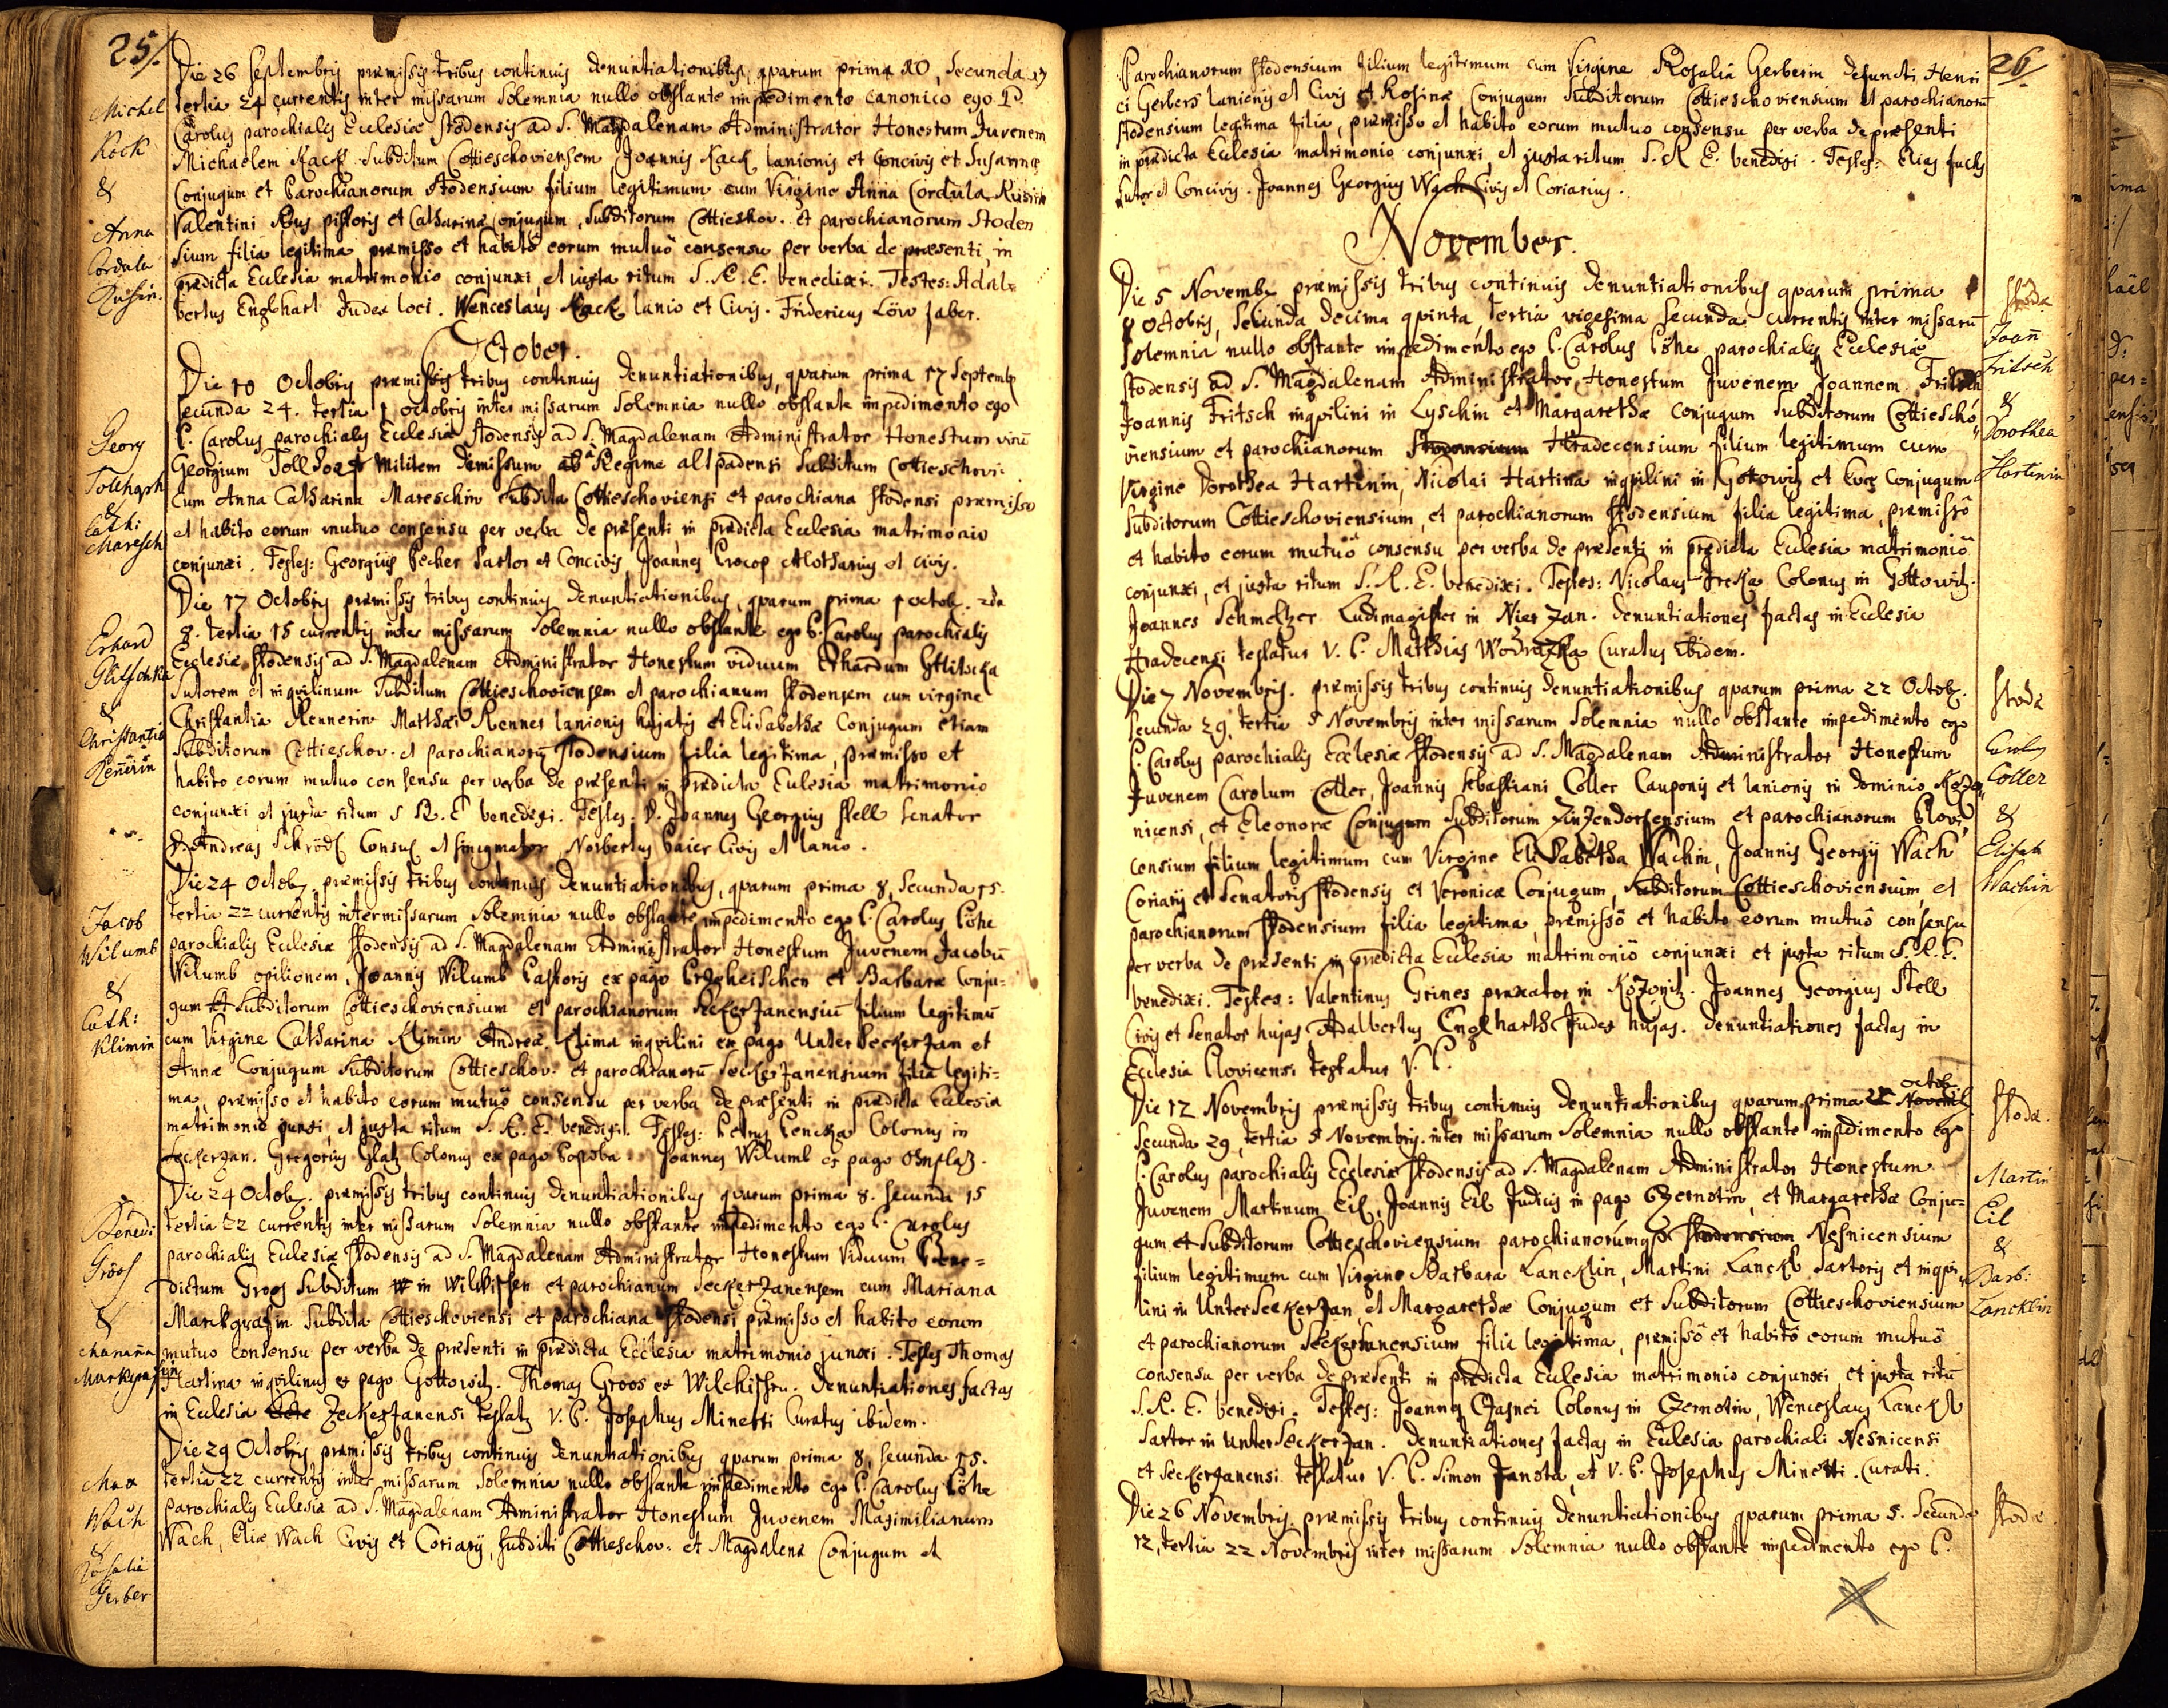 25/.
Die 26 Septembris præmissis tribus continuis denuntiationibus, quarum prima 10, secunda 17
tertia 24 currentis inter missarum solemnia nullo obstante impedimento canonico ego P.
Carolus parochialis Ecclesiæ stodensis ad S. Magdalenam Administrator Honestum Juvenem
Michaelem Kack subditum Cottieschoviensem Joannis Kack lanionis et Concivis et Susannæ
Conjugum et Parochianorum stodensium filium legitimum cum Virgine Anna Cordula Rusin
Valentini Rus pistoris et Catharinæ conjugum, subditorum Cottieschov. et parochianorum Stoden
sium filia legitima præmisso et habito eorum mutuô consensu per verba de præsenti, in
prædicta Ecclesia matrimonio conjunxi, et juxta ritum S. R. E. benedixi. Testes: Adal=
bertus Englhart Judex loci. Wenceslaus Kack lanio et Civis. Fridericus Löw faber.
Michel
Kock
&
Anna
Cordula
Rusin.
October.
Die 10 Octobris præmissis tribus continuis denuntiationibus, quarum prima 17 Septemb.
secunda 24. tertia 1 octobris inter missarum solemnia nullo obstante impedimento ego
P. Carolus parochialis Ecclesiæ stodensis ad S. Magdalenam Administrator Honestum virū
Georgium militem dimissum ab Regime altpadensi subditum Cottieschovi.
cum Anna Catharina Mareschin subdita Cottieschoviensi et parochiana stodensi præmisso
et habito eorum mutuo consensu per verba de præsenti in prædicta Ecclesia matrimonio
conjunxi. Testes: Georgius Pecher sartor et Concivis, Joannes Procop et Civis.
Georg
&
Cath:
Maresch
Die 17 Octobris præmissis tribus continuis denuntiationibus, quarum prima 1 octob. 2da
8. tertia 15 currentis inter missarum solemnia nullo obstante ego P. Carolus parochialis
Ecclesiæ stodensis ad S. Magdalenam Administrator Honestum viduum Erhardum Glitscka
sutorem et inquilinum subditum Cottieschoviensem et parochianum stodensem cum virgine
Christantia Rennerin Matthæi Renner lanionis hujatis et Elisabethæ Conjugum etiam
subditorum Cottieschov. et parochianorū stodensium filia legitima, præmisso et
habito eorum mutuo consensu per verba de præsenti in prædicta Ecclesia matrimonio
conjunxi et juxta ritum S R. E benedixi. Testes. D. Joannes Georgius Stell senator
D. Andreas Schrödl Consul et Norbertus Paier Civis et lanio.
Erhard
Glitschka
&
Christantia
Reñerin
Die 24 Octob. præmissis tribus continuis denuntiationibus, quarum prima 8, secunda 15.
tertia 22 currentis inter missarum solemnia nullo obstante impedimento ego P. Carolus Löhe
parochialis Ecclesiæ stodensis ad S. Magdalenam Administrator Honestum Juvenem Jacobū
Wilumb opilionem, Joannis Wilumb Pastoris ex pago Przeheischen et Barbaræ Conju=
gum subditorum Cottieschoviensium et parochianorum Seckerzanensiū filium legitimū
cum Virgine Catharina Klimin Andreæ Klima inquilini ex pago Unter Seckerzan et
Annæ Conjugum subditorum Cottieschov. et parochianorū Seckerzanensium filia legiti=
ma, præmisso et habito eorum mutuô consensu per verba de præsenti in prædicta Ecclesia
matrimonio junxi, et juxta ritum S. R. E. benedixi. Testes: Petrus Colonus in
Seckerzan. Gregorius Glatz Colonus ex pago Joannes Wilumb ex pago
Jacob
Wilumb
&
Cath:
Klimin
Die 24 Octob. præmissis tribus continuis denuntiationibus quarum prima 8. secunda 15
tertia 22 currentis inter missarum solemnia nullo obstante impedimento ego P. Carolus
parochialis Ecclesiæ stodensis ad S. Magdalenam Administrator Honestum Viduum Bene=
dictum Groos subditum in Wilkischen et parochianum Seckerzanensem cum Mariana
Markgrafin subdita Cottieschoviensi et parochiana stodensi præmisso et habito eorum
mutuo consensu per verba de præsenti in prædicta Ecclesia matrimonio junxi. Testes Thomas
Hartina inquilinus ex pago Gottowitz. Thomas Groos ex Wilchischen. Denuntiationes factas
in Ecclesia Zeckerzanensi testatur V. P. Josephus Minetti Curatus ibidem.
Benedi
Groos
&
Mariana
Markgrafin
Die 29 Octobris præmissis tribus continuis denuntiationibus quarum prima 8, secunda 15.
tertia 22 currentis inter missarum solemnia nullo obstante impedimento ego P. Carolus Löhe
parochialis Ecclesiæ ad S. Magdalenam Administrator Honestum Juvenem Maximilianum
Wach, Eliæ Wach Civis et Coriarij, subditi Cottieschov. et Magdalenæ Conjugum et
Max
Wach
&
Rosalia
Gerber
26/
Parochianorum stodensium filium legitimum cum Virgine Rosalia Gerberin defuncti Henri
ci Gerbers lanienis et Civis et Rosinæ Conjugum subditorum Cottieschoviensium et parochianorū
stodensium legitima filia, præmisso et habito eorum mutuo consensu per verba de præsenti
in prædicta Ecclesia matrimonio conjunxi, et juxta ritum S. R E. benedixi. Testes: Elias Fuchs
sutor et Concivis. Joannes Georgius Wach Civis et Coriarius.
November.
Die 5 Novemb. præmissis tribus continuis denuntiationibus quarum prima
8 octobris, secunda decima quinta, tertia vigesima secunda currentis inter missarū
solemnia nullo obstante impedimento ego P. Carolus Löhe parochialis Ecclesiæ
stodensis ad S. Magdalenam Administrator, Honestum Juvenem Joannem Fritsch
Joannis Fritsch inquilini in Lyschin et Margarethæ conjugum subditorum Cottiescho
viensium et parochianorum Hradecensium filium legitimum cum
Virgine Dorothea Hartinin, Nicolai Hartina inquilini in Gottowitz et Evæ Conjugum
subditorum Cottieschoviensium, et parochianorum stodensium filia legitima, præmissô
et habito eorum mutuô consensu per verba de præsenti in prædicta Ecclesia matrimoniô
conjunxi, et juxta ritum S. R. E. benedixi. Testes: Nicolaus Colonus in Gottowitz.
Joannes Schmeltzer Ludimagister in Nierzan. Denuntiationes factas in Ecclesia
Hradecensi testatur V. P. Matthias Wodrazka Curatus ibidem.
Stoda
Joañ
Fritsch
&
Dorothea
Hartinin
Die 7 Novembris. præmissis tribus continuis denuntiationibus quarum prima 22 Octob.
secunda 29, tertia 5 Novembris inter missarum solemnia nullo obstante impedimento ego
P. Carolus parochialis Ecclesiæ stodensis ad S. Magdalenam Administrator Honestum
Juvenem Carolum Coller, Joannis Sebastiani Coller Cauponis et lanionis in dominio Kozo
nicensi, et Eleonoræ Conjugum subditorum Zinzendorfensium et parochianorum Plovi
censium filium legitimum cum Virgine Elisabetha Wachin, Joannis Georgij Wach
Coriarij et Senatoris stodensis et Veronicæ Conjugum, subditorum Cottieschoviensium, et
parochianorum stodensium filia legitima, præmissô et habito eorum mutuô consensu
per verba de præsenti in prædicta Ecclesia matrimoniô conjunxi et juxta ritum S. R. E.
benedixi. Testes: Valentinus Grines praxator in Kozonitz. Joannes Georgius Stell
Civis et Senator hujas, Adalbertus Englharth Judex hujas. Denuntiationes factas in
Ecclesia Plovicensi testatur V. P.
Stoda
Carolus
Coller
&
Elisab
Wachin
octob.
Die 12 Novembris præmissis tribus continuis denuntiationibus quarum prima 22 Novemb
secunda 29, tertia 5 Novembris. inter missarum solemnia nullo obstante impedimento ego
P. Carolus parochialis Ecclesiæ stodensis ad S. Magdalenam Administrator Honestum
Juvenem Martinum Eil, Joannis Eil Judicis in pago Czernotin, et Margarethæ Conju=
gum et subditorum Cottieschoviensium parochianorúmq Nesnicensium
filium legitimum cum Virgine Barbara Lancklin, Martini Lanckl sartoris et inqui
lini in Unter Seckerzan, et Margarethæ Conjugum et subditorum Cottieschoviensium
et parochianorum Seckerzanensium filia legitima, præmissô et habitô eorum mutuô
consensu per verba de præsenti in prædicta Ecclesia matrimonio conjunxi et juxta ritū
S. R. E. benedixi. Testes: Joannes Colonus in Czernotin, Wenceslaus Lanckl
sartor in Unter Seckerzan. Denuntiationes factas in Ecclesia parochiali Nesnicensi
et Seckerzanensi testatur V. P. Simon Janota, et V. P. Josephus Minetti. Curati.
Stoda.
Martin
Eil
&
Barb:
Lancklin
Die 26 Novembris. præmissis tribus continuis denuntiationibus quarum prima 5. secunda
12, tertia 22 Novembris inter missarum solemnia nullo obstante impedimento ego P.
Stoda